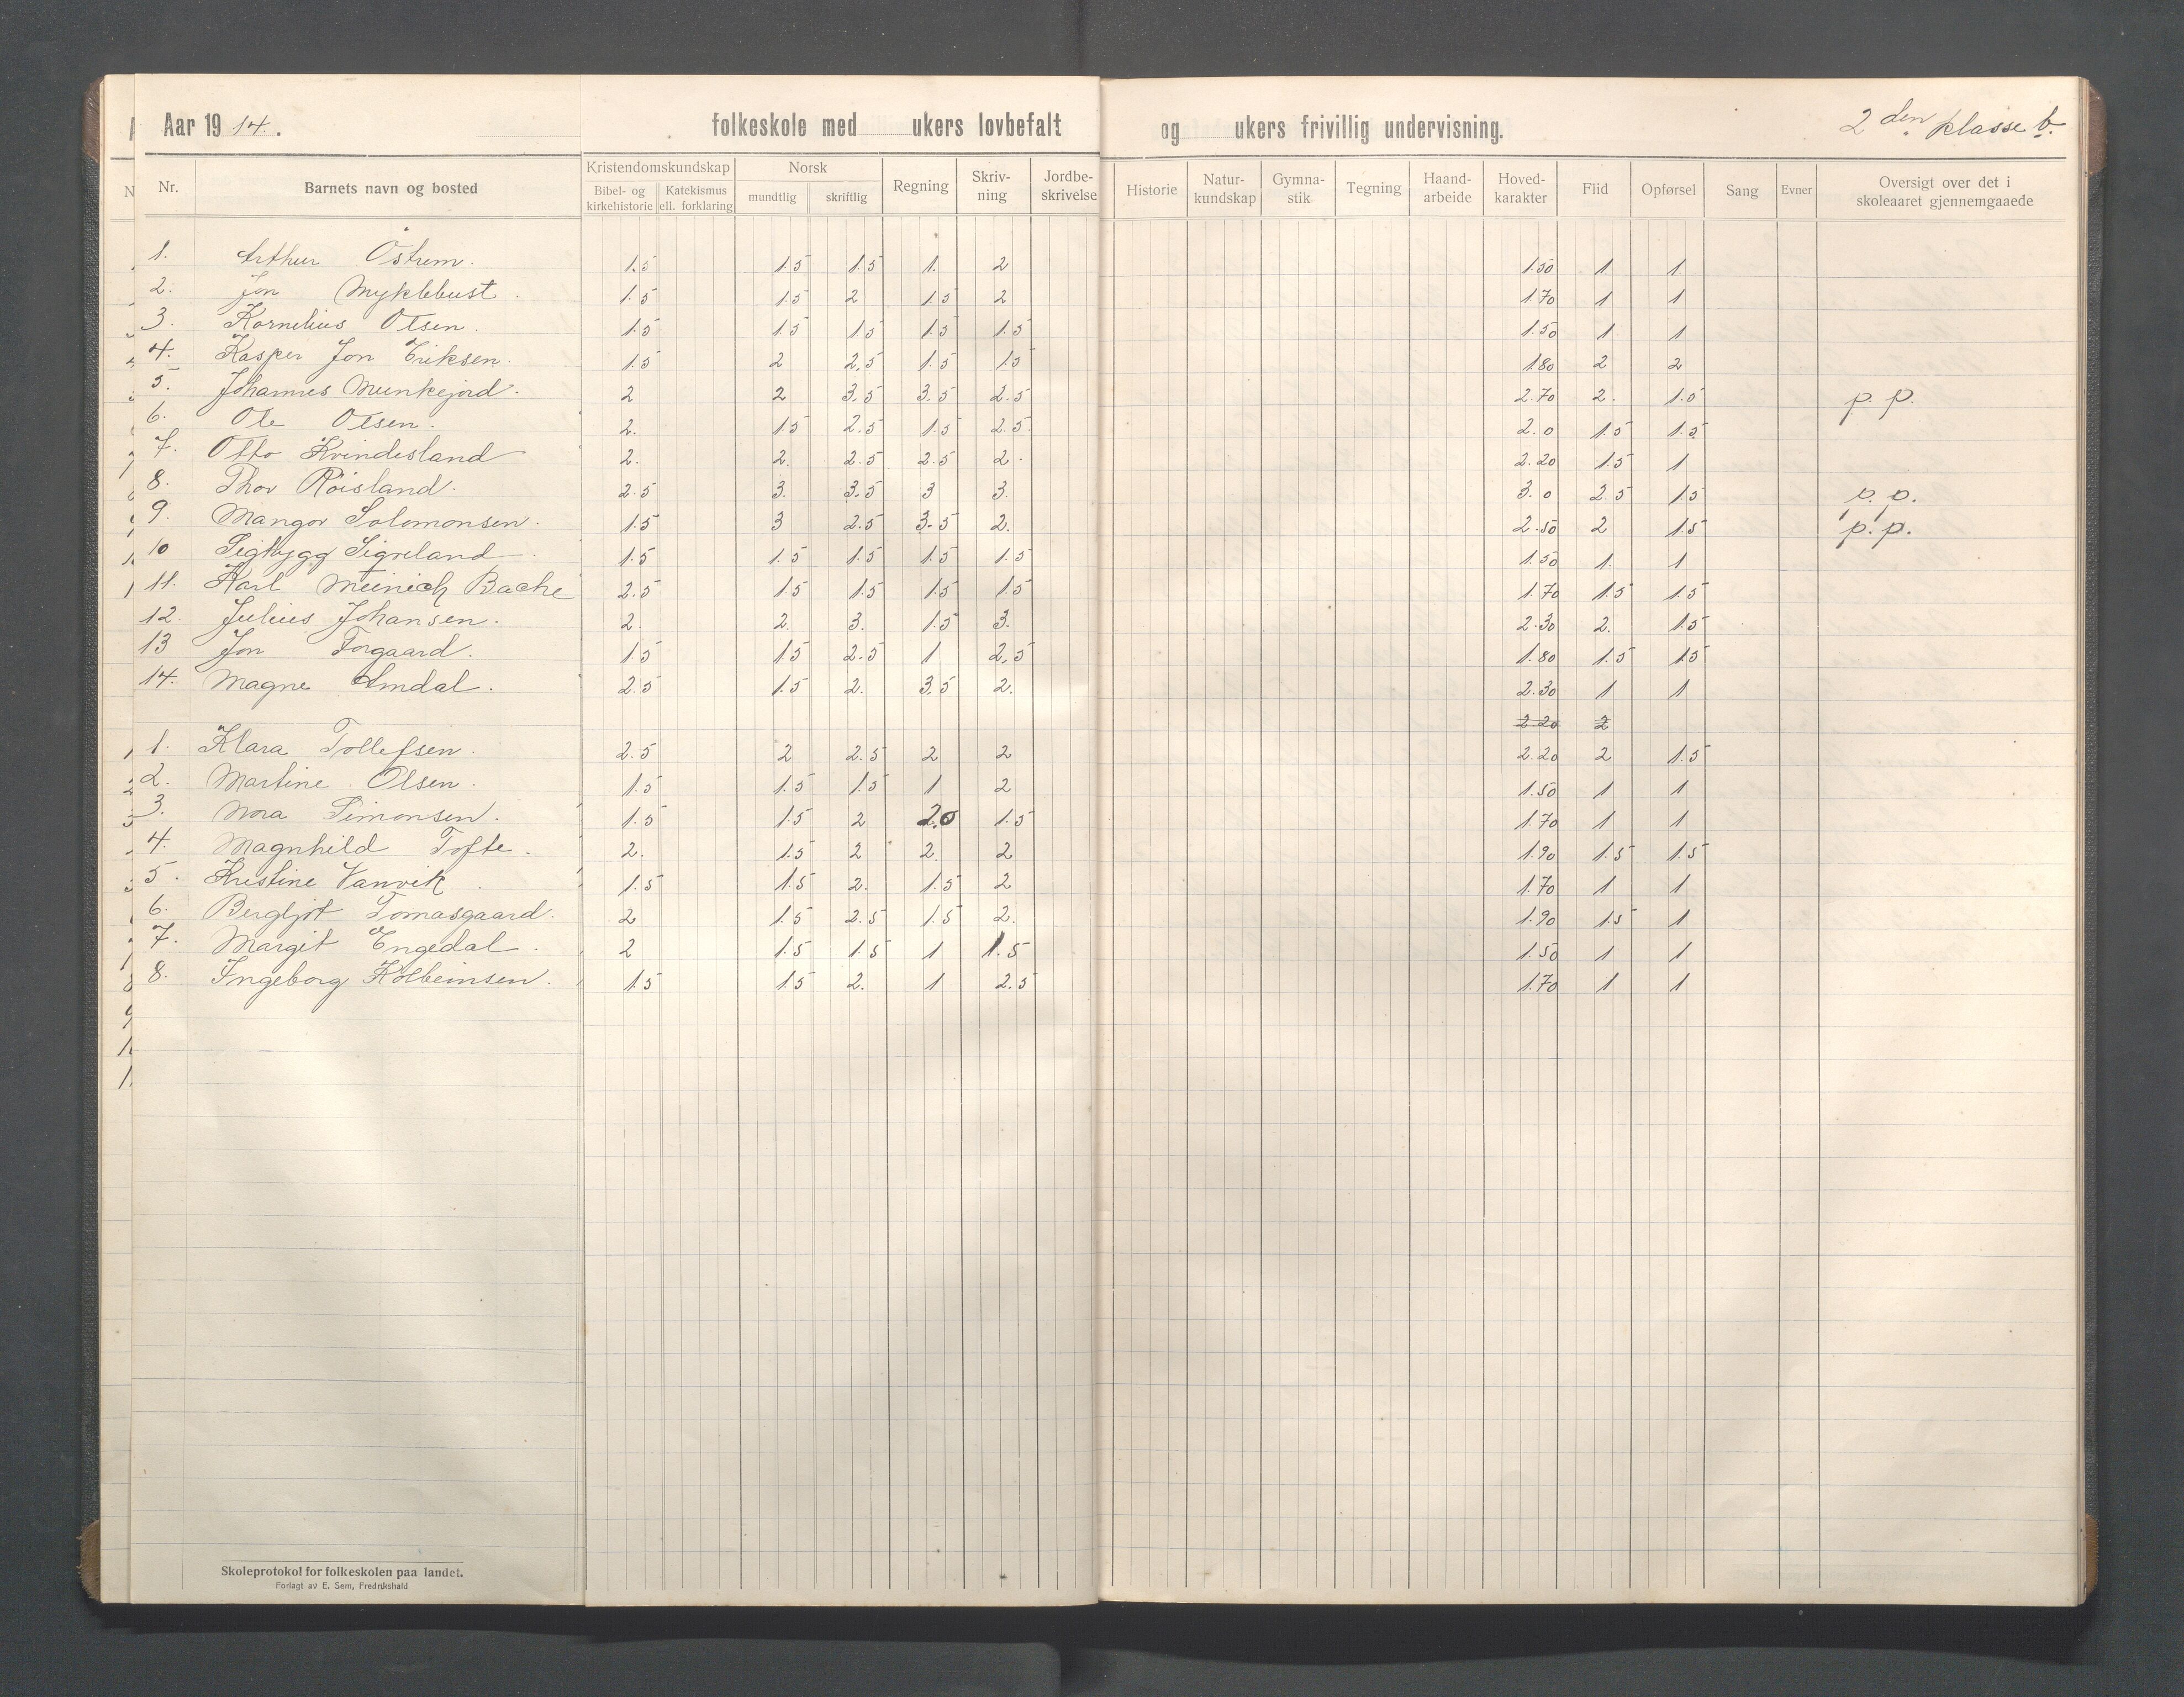 Aar 1914. folkeskole med ukers lovbefalt og ukers frivillig undervisning. 2den klasse b.
Nr. Barnets navn og bosted Kristendomskundskap Bibel- og kirkehistorie Katekismus ell. forklaring Norsk mundtlig skriftlig Regning Skriv-ning Jordbe-skrivelse Historie Natur-kundskap Gymna-stik Tegning Haand-arbeide Hoved-karakter Flid Opførsel Sang Evner Oversigt over det i skoleaaret gjennemgaaede
1. Arthur Östrem. 1.5 1.5 1.5 1. 2 1.50 1 1
2. Jon Myklebust. 1.5 1.5 2 1.5 2 1.70 1 1
3. Kornelius Olsen. 1.5 1.5 1.5 1.5 1.5 1.50 1 1
4. Kasper Jon Eriksen. 1.5 2 2.5 1.5 1.5 1.80 2 2
5. Johannes Munkejord. 2 2 3.5 3.5 2.5 2.70 2. 1.5 p. p.
6. Ole Olsen. 2. 1.5 2.5 1.5 2.5 2.0 1.5 1.5
7. Otto Kvindesland 2. 2. 2.5 2.5 2. 2.20 1.5 1
8. Thor Röisland. 2.5 3. 3.5 3 3. 3.0 2.5 1.5 p. p.
9. Mangor Solomonsen. 1.5 3 2.5 3.5 2. 2.50 2 1.5 p. p.
10 Sigtrygg Sigveland. 1.5 1.5 1.5 1.5 1.5 1.50 1. 1
11. Karl Meinich Bache 2.5 1.5 1.5 1.5 1.5 1.70 1.5 1.5
12. Julius Johansen. 2. 2. 3. 1.5 3. 2.30 2. 1.5
13 Jon Torgaard. 1.5 1.5 2.5 1 2.5 1.80 1.5 1.5
14. Magne Amdal. 2.5 1.5 2. 3.5 2. 2.30 1 1
2.20 2
1. Klara Tollefsen. 2.5 2 2.5 2 2 2.20 2 1.5
2. Martine Olsen. 1.5 1.5 1.5 1 2 1.50 1 1
3. Nora Simonsen. 1.5 1.5 2 2.0 1.5 1.70 1 1
4. Magnhild Tofte. 2. 1.5 2 2. 2 1.90 1.5 1.5
5. Kristine Vanvik. 1.5 1.5 2. 1.5 2 1.70 1 1
6. Bergljot Tomasgaard. 2 1.5 2.5 1.5 2. 1.90 1.5 1
7. Margit Engedal. 2 1.5 1.5 1 1.5 1.50 1 1
8. Ingeborg Kolbeinsen. 1.5 1.5 2. 1 2.5 1.70 1 1
Skoleprotokol for folkeskolen paa landet.
Forlagt av E. Sem, Fredrikshald